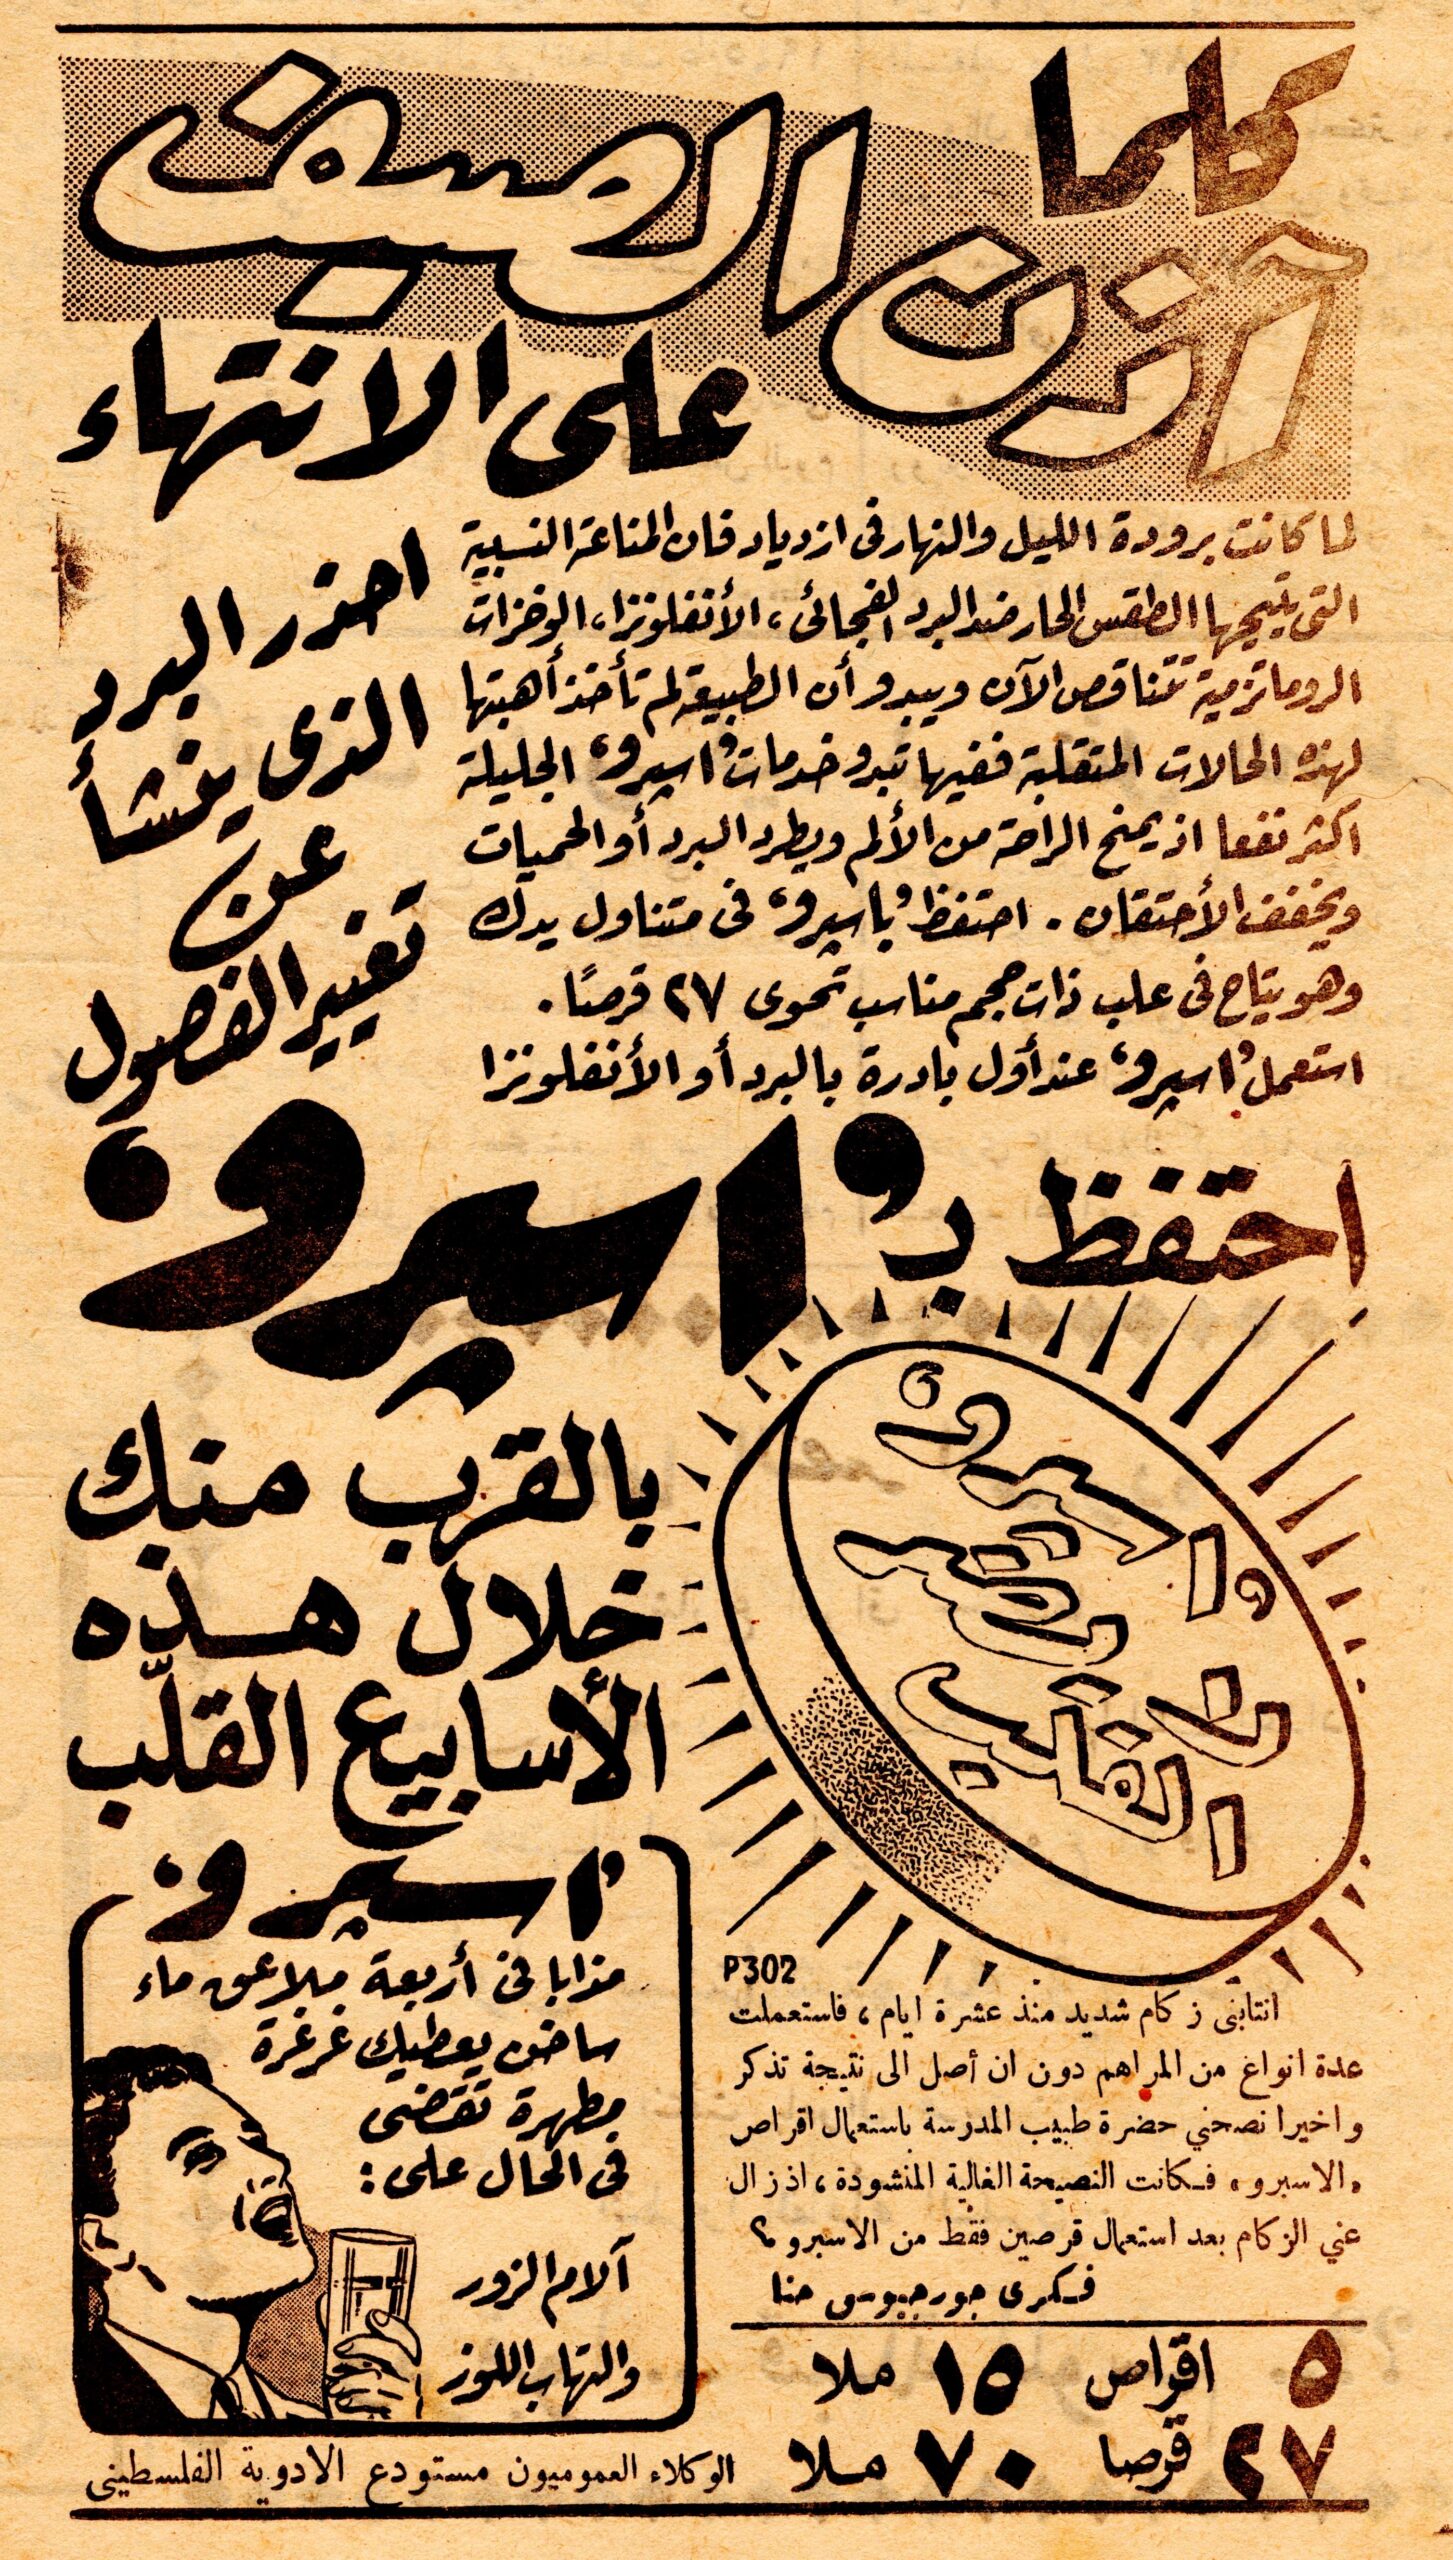 كلما
آذن الصيف
على الانتهاء
لما كانت برودة الليل والنهار فى ازدياد فان المناعة النسبية
التى يتيحها الطقس الحار ضد البرد الفجائى، الأنفلونزا، الوخزات
الروماتزمية تتناقص الآن ويبدو أن الطبيعة لم تأخذ أهبتها
لهذه الحالات المتقلبة ففيها تبدو خدمات "اسبرو" الجليلة
اكثر نفعا اذ يمنح الراحة من الألم ويطرد البرد أو الحميات
ويخفف الأحتقان . احتفظ "باسبرو" فى متناول يدك
وهو يتاح فى علب ذات حجم مناسب تحوى ٢٧ قرصًا .
استعمل "اسبرو" عند أول بادرة بالبرد أو الأنفلونزا
احذر البرد
الذى ينشأ
عن
تغيير الفصول
احتفظ بـ "اسبرو"
بالقرب منك
خلال هذه
الأسابيع القلّب
"اسبرو"
"اسبرو"
مذابا فى أربعة ملاعق ماء
ساخن يعطيك غرغرة
مطهرة تقضى
فى الحال على :
آلام الزور
والتهاب اللوز
P302
انتابنى زكام شديد منذ عشرة ايام ، فاستعملت
عدة انواع من المراهم دون ان أصل الى نتيجة تذكر
واخيرا نصحني حضرة طبيب المدرسة باستعمال اقراص
«الاسبرو» فكانت النصيحة الغالية المنشودة ، اذ زال
عني الزكام بعد استعمال قرصين فقط من الاسبرو ؟
فكرى جورجيوس حنا
٥ اقراص ١٥ ملا
٢٧ قرصا ٧٠ ملا
الوكلاء العموميون مستودع الادوية الفلسطينى